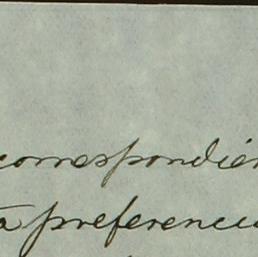 correspondien
a preferencia